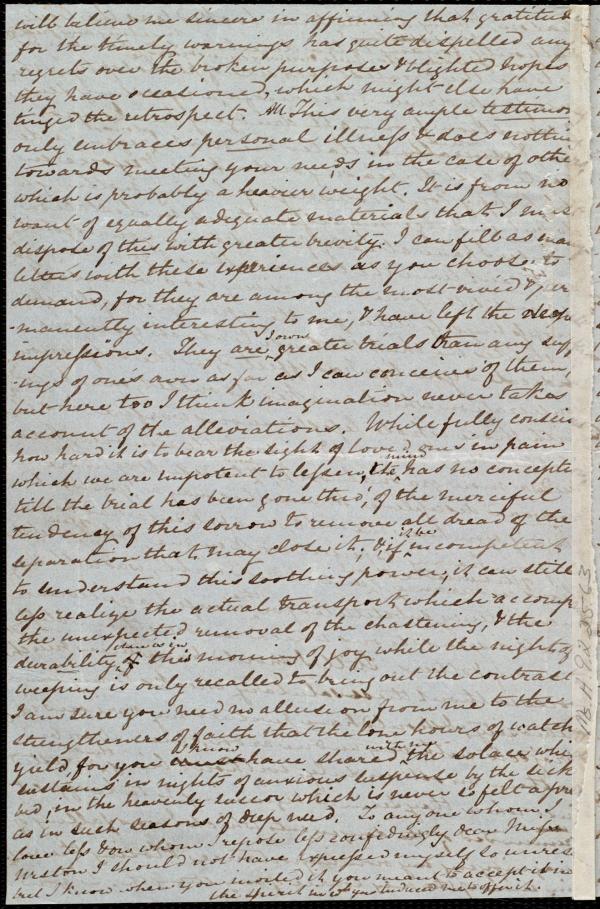 will believe me sincere in affirming that gratitude
for the timely warnings has quite dispelled any
regrets over the broken purposes & blighted hopes
they have occasioned, which might else have
tinged the retrospect. All This very ample testimon
only embraces personal illness & does nothin
towards meeting your needs in the case of other
which is probably a heavier weight. It is from no
want of equally adequate materials that I must
dispose of this with greater brevity. I can fill as many
letters with these experiences as you choose to
demand, for they are among the most vivid & per
-manently interesting to me, & have left the deep
impressions. They are, I own, greater trials than any suff
-ings of one's own as far as I can conceive of them,
but here too I think imagination never takes
account of the alleviations. While fully conscio
how hard it is to bear the sight of loved ones in pain
which we are impotent to lessen, the mind has no concepti
till the trial has been gone thro', of the merciful
tendency of this sorrow to remove all dread of the
separation that may close it; & if it be incompetent
to understand this soothing power, it can still
less realize the actual transport which accomp
the unexpected removal of the chastening, & the
durability of this morning of joy, while the night of
weeping is only recalled to bring out the contrast
I am sure you need no allusion from me to the
strengtheners of faith that the lone hours of watch
yield, for you know have shared with it the solace whi
sustains in nights of anxious suspense by the sick
bed, in the heavenly succor which is never so felt afore
as in such seasons of deep need. To any one whom I
love less & on whom I repose less confidingly dear Mrs
Weston I should not have expressed myself so unres
but I know when you invited it you meant to accept it in
the spirit in wh. you induced me to offer it.